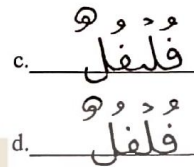 c. فُلْفُلٌ
d. فُلْفُلٌ